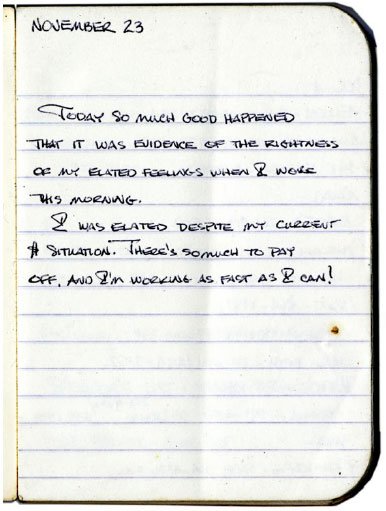 NOVEMBER 23
TODAY SO MUCH GOOD HAPPENED
THAT IT WAS EVIDENCE OF THE RIGHTNESS
OF MY ELATED FEELINGS WHEN I WOKE
THIS MORNING.
I WAS ELATED DESPITE MY CURRENT
$ SITUATION. THERE'S SO MUCH TO PAY
OFF, AND I'M WORKING AS FAST AS I CAN!